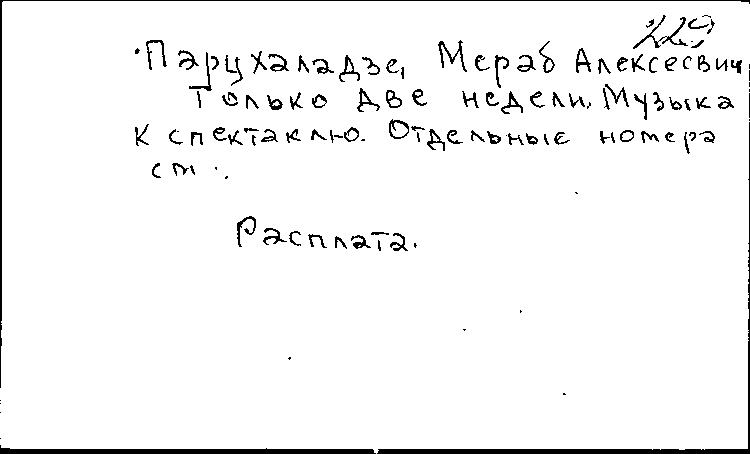 229
Парцхаладзе, Мераб Алексеевич
Только две недели. Музыка
к спектаклю. Отдельные номера
см.:
Расплата.